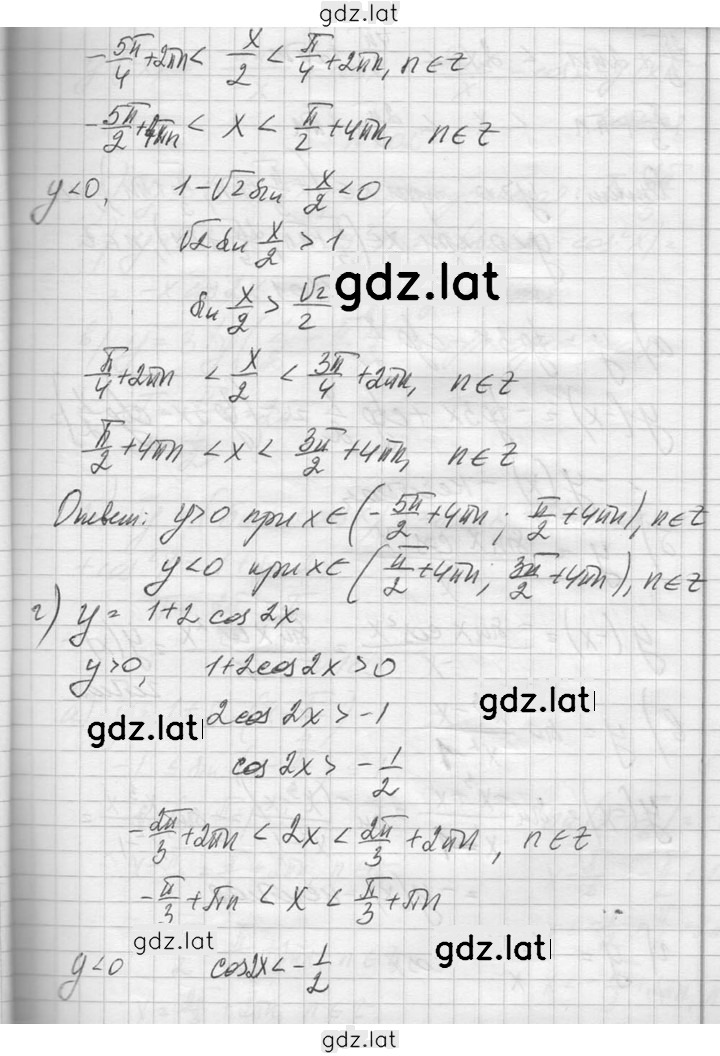 gdz.lat
-5π/4+2πn < x/2 < π/4+2πn, n∈Z
-5π/2+4πn < x < π/2+4πn, n∈Z
y<0, 1-√2 sin x/2 <0
√2 sin x/2 > 1
gdz.lat
sin x/2 > √2/2
π/4+2πn < x/2 < 3π/4+2πn, n∈Z
π/2+4πn < x < 3π/2+4πn, n∈Z
Ответ: y>0 при x∈(-5π/2+4πn; π/2+4πn), n∈Z
y<0 при x∈(π/2+4πn; 3π/2+4πn), n∈Z
г) y= 1+2 cos 2x
y>0, 1+2cos2x>0
gdz.lat
gdz.lat
2cos 2x>-1
cos 2x> -1/2
-2π/3+2πn < 2x < 2π/3+2πn, n∈Z
-π/3+πn < x < π/3+πn
gdz.lat
gdz.lat
y<0 cos2x<-1/2
gdz.lat